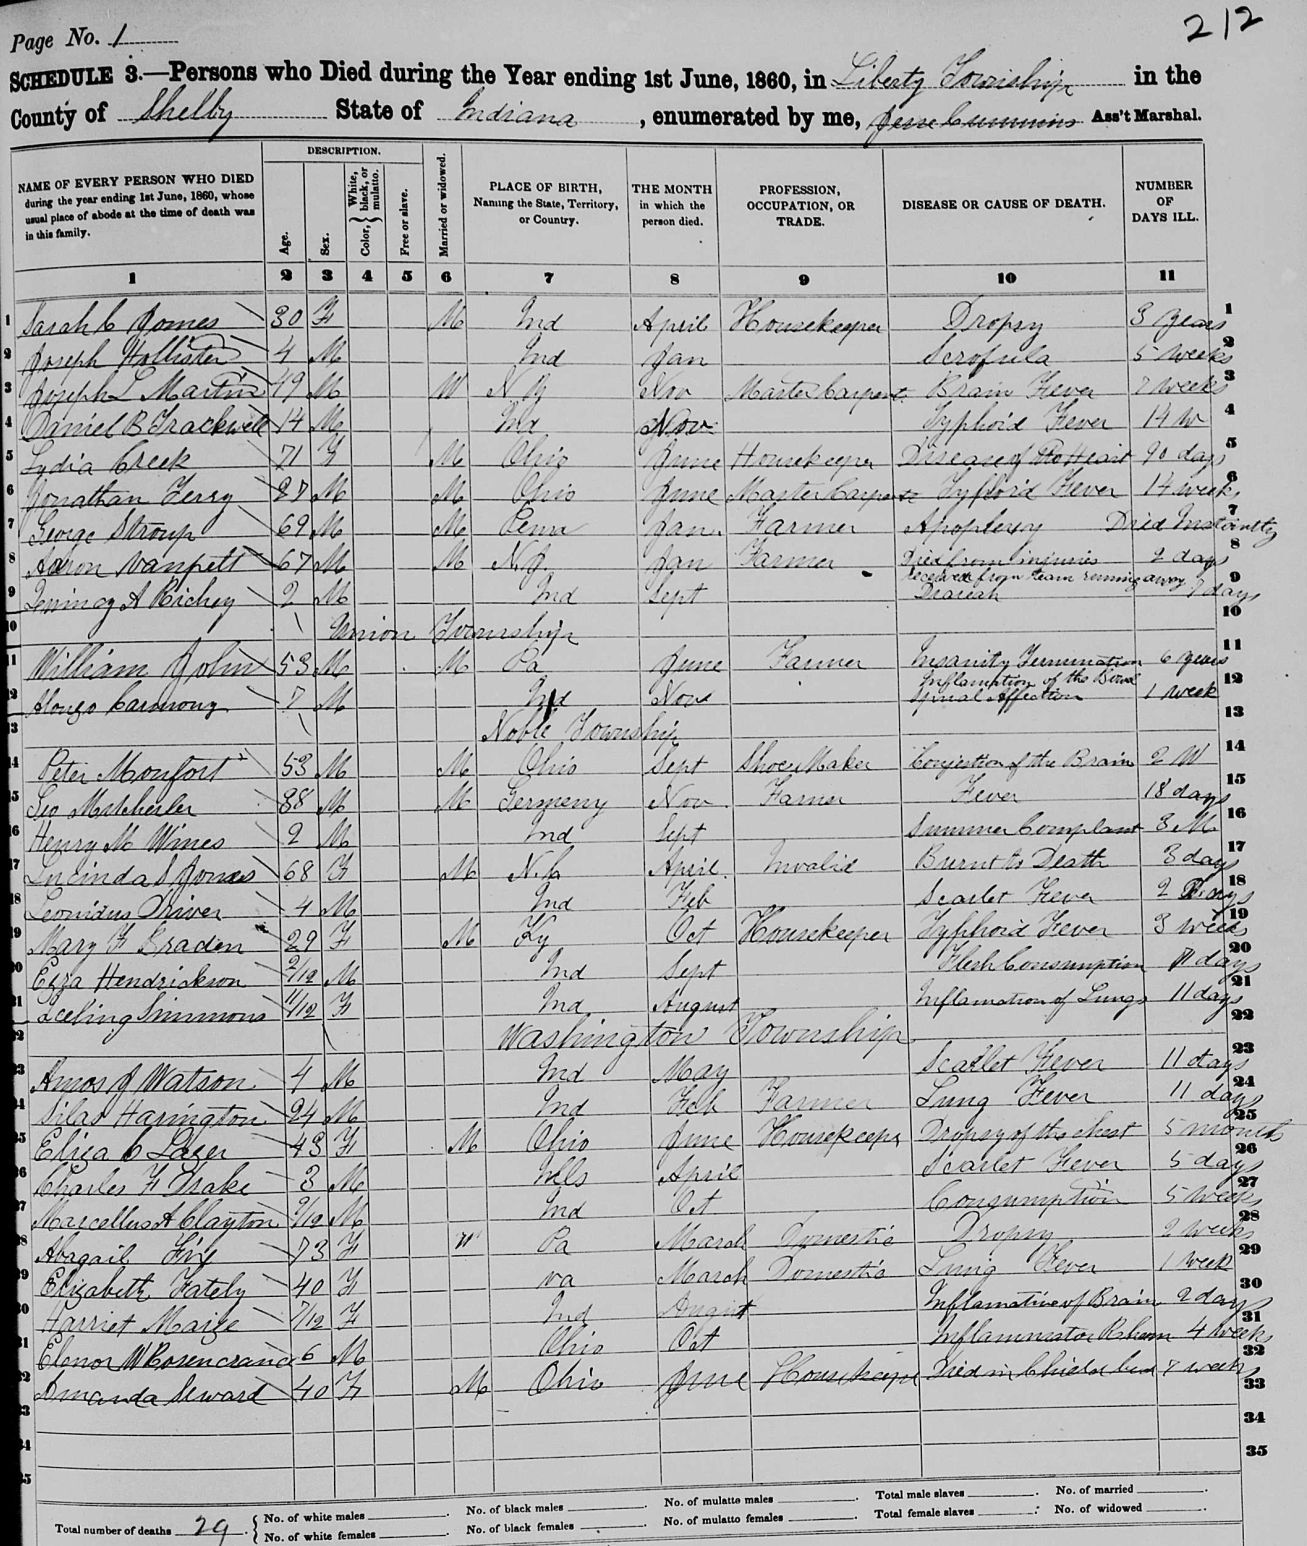 Page No. 1
212
SCHEDULE 3.—Persons who Died during the Year ending 1st June, 1860, in Liberty Township in the
County of Shelby State of Indiana, enumerated by me, Jesse Cummins Ass't Marshal.
NAME OF EVERY PERSON WHO DIED during the year ending 1st June, 1860, whose usual place of abode at the time of death was in this family.
DESCRIPTION.
Age.
Sex.
Color, { White, black, or mulatto.
Free or slave.
Married or widowed.
PLACE OF BIRTH, Naming the State, Territory, or Country.
THE MONTH in which the person died.
PROFESSION, OCCUPATION, OR TRADE.
DISEASE OR CAUSE OF DEATH.
NUMBER OF DAYS ILL.
1 2 3 4 5 6 7 8 9 10 11
1 Sarah C Jones 30 F M Ind April Housekeeper Dropsy 3 years 1
2 Joseph Hollister 4 M Ind Jan Scrofula 5 weeks 2
3 Joseph L Martin 49 M W N.J. Nov Master Carpent Brain Fever 7 weeks 3
4 Daniel B Trackwell 14 M Ind Nov Typhoid Fever 14 W 4
5 Lydia Creek 71 F M Ohio June Housekeeper Disease of the Heart 90 days 5
6 Jonathan Terry 27 M M Ohio June Master Carpent Tyfloid Fever 14 weeks 6
7 George Stroup 69 M M Penn Jan. Farmer Apoplexy Died Instantly 7
8 Aaron Vanpelt 67 M M N.J. Jan Farmer Died from injuries 2 days 8
received from team running away
9 A Richey 2 M Ind Sept Diareah 7 days 9
10 Union Township 10
11 William John 53 M M Pa June Farmer Insanity Termination 6 years 11
Inflamption of the Bowel
12 Alonzo Carmony 7 M Ind Nov Spinal Affection 1 week 12
13 Noble Township 13
14 Peter Monfort 53 M M Ohio Sept Shoe Maker Conjestion of the Brain 2 W 14
15 Geo 88 M M Germeny Nov Farmer Fever 18 days 15
16 Henry M Wines 2 M Ind Sept Summer Complant 3 M 16
17 Lucinda S Jones 68 F M N.C April Invalid Burnt to Death 3 days 17
18 Leonidus Driver 4 M Ind Feb Scarlet Fever 2 Days 18
19 Mary F Braden 29 F M Ky Oct Housekeeper Typhoid Fever 3 weeks 19
20 Ezra Hendrickson 2/12 M Ind Sept Flesh Consumption 7 days 20
21 Simmons 11/12 F Ind August Inflamation of Lungs 11 days 21
22 Washington Township 22
23 Amos J Watson 4 M Ind May Scarlet Fever 11 days 23
24 Silas Harington 24 M Ind Feb Farmer Lung Fever 11 days 24
25 Eliza C Lazer 43 F M Ohio June Housekeepr Dropsy of the chest 5 months 25
26 Charles F Drake 3 M Ills April Scarlet Fever 5 days 26
27 Marcellus A Clayton 9/12 M Ind Oct Consumption 5 weeks 27
28 Abagail Fix 73 F W Pa March Domestic Dropsy 2 weeks 28
29 Elizabeth Fately 40 F Va March Domestic Lung Fever 1 week 29
30 Harriet Maize 7/12 F Ind August Inflamative of Brain 2 days 30
31 Elonor W Rosencrance 6 M Ohio Oct Inflammator Rheum 4 weeks 31
32 Amanda Seward 40 F M Ohio June Housekeepr Died in Child bed 7 weeks 32
33 33
34 34
35 35
Total number of deaths 29. { No. of white males
No. of white females
No. of black males
No. of black females
No. of mulatto males
No. of mulatto females
Total male slaves
Total female slaves
No. of married
No. of widowed